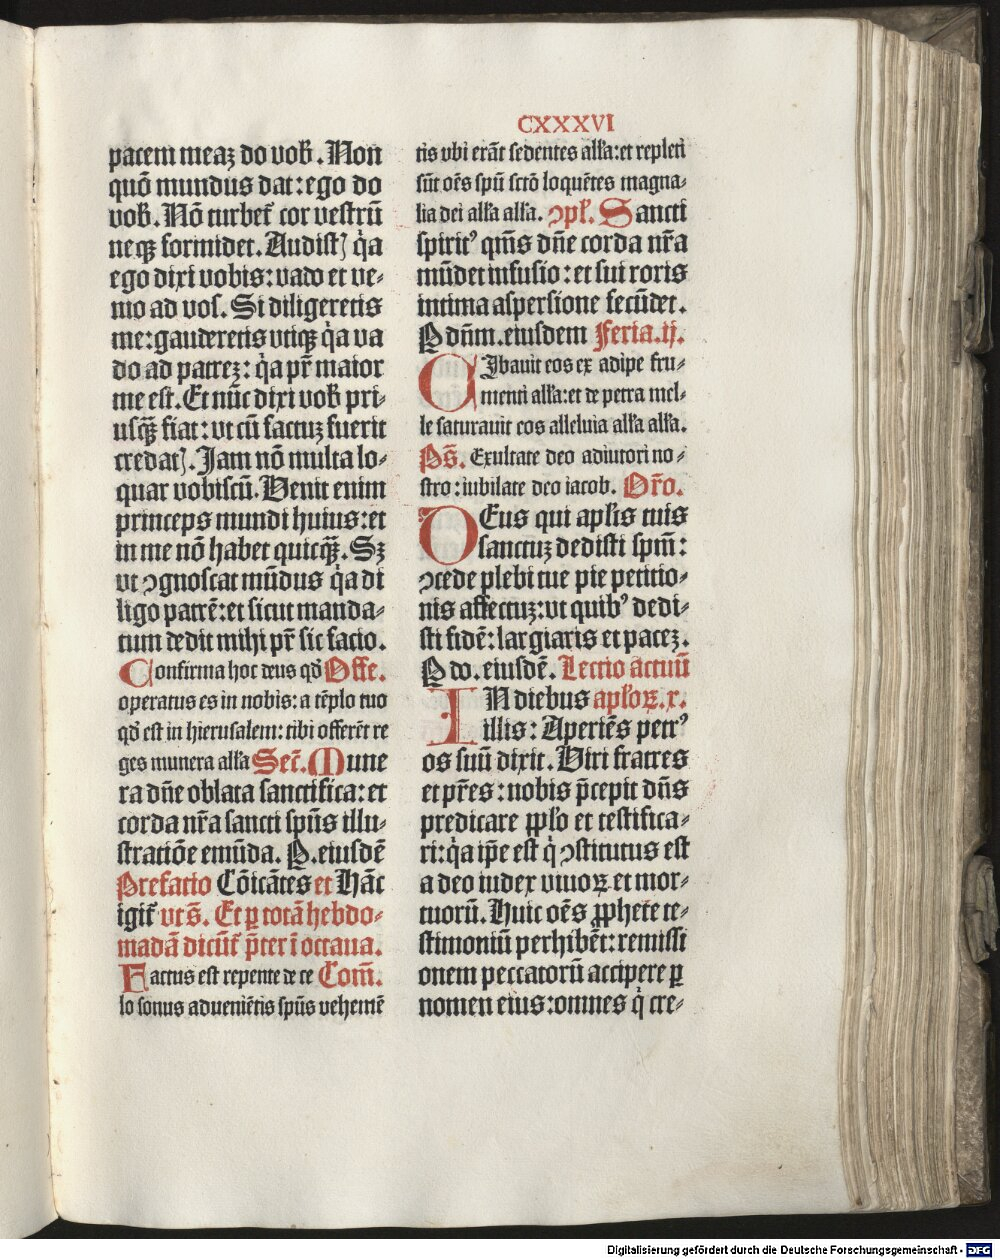 CXXXVI
pacem meaꝫ do vob̄. Non
quō mundus dat: ego do
vob̄. Nō turbet᷑ cor vestrū
neqꝫ formidet. Audistꝭ q̇a
ego dixi vobis: vado et ve⸗
nio ad vos. Si diligeretis
me: gauderetis vtiqꝫ q̇a va
do ad patreꝫ: q̇a pr̄ maior
me est. Et nūc dixi vob̄ pri⸗
usqꝫ̄ fiat: vt cū factuꝫ fuerit
credatꝭ. Jam nō multa lo⸗
quar vobiscū. Venit enim
princeps mundi huius: et
in me nō habet quicqꝫ̄. Sꝫ
vt ꝯgnoscat mūdus q̇a di
ligo patrē: et sicut manda⸗
tum dedit mihi pr̄ sic facio.
Confirma hoc deus qđ Offe.
operatus es in nobis: a tēplo tuo
qđ est in hierusalem: tibi offerēt re
ges munera alła Secr̄. Mune
ra dn̄e oblata sanctifica: et
corda nr̄a sancti spūs illu⸗
stratiōe emūda. P. eiusdē
Prefatio Cōicātes et Hāc
igit᷑ vt s̄. Et ꝑ totā hebdo⸗
madā dicūt᷑ p̄ter ī octaua.
Factus est repente de ce Com̄.
lo sonus adueniētis spūs vehemē
tis vbi erāt sedentes alła: et repleti
sūt oēs spū sctō loquētes magna⸗
lia dei alła alła. ꝯpl̄. Sancti
spiritꝰ qm̄s dn̄e corda nr̄a
mūdet infusio: et sui roris
intima aspersione fecūdet.
P dn̄m. eiusdem Feria. ij.
CJbauit eos ex adipe fru⸗
menti alła: et de petra mel⸗
le saturauit eos alleluia alła alła.
Ps̄. Exultate deo adiutori no⸗
stro: iubilate deo iacob. Or̄o.
DEus qui apl̄is tuis
sanctuꝫ dedisti spm̄:
ꝯcede plebi tue pie petitio⸗
nis affectuꝫ: vt quibꝰ dedi⸗
sti fidē: largiaris et paceꝫ.
P do. eiusdē. Lectio actuū
IN diebus apl̄oꝝ. x.
illis: Aperiēs petrꝰ
os suū dixit. Viri fratres
et pr̄es: nobis p̄cepit dn̄s
predicare ppl̄o et testifica⸗
ri: q̇a ip̄e est q̇ ꝯstitutus est
a deo iudex viuoꝝ et mor⸗
tuorū. Huic oēs ꝓphete te⸗
stimoniū perhibēt: remissi
onem peccatorū accipere ꝑ
nomen eius: omnes q̇ cre⸗
Digitalisierung gefördert durch die Deutsche Forschungsgemeinschaft - DFG